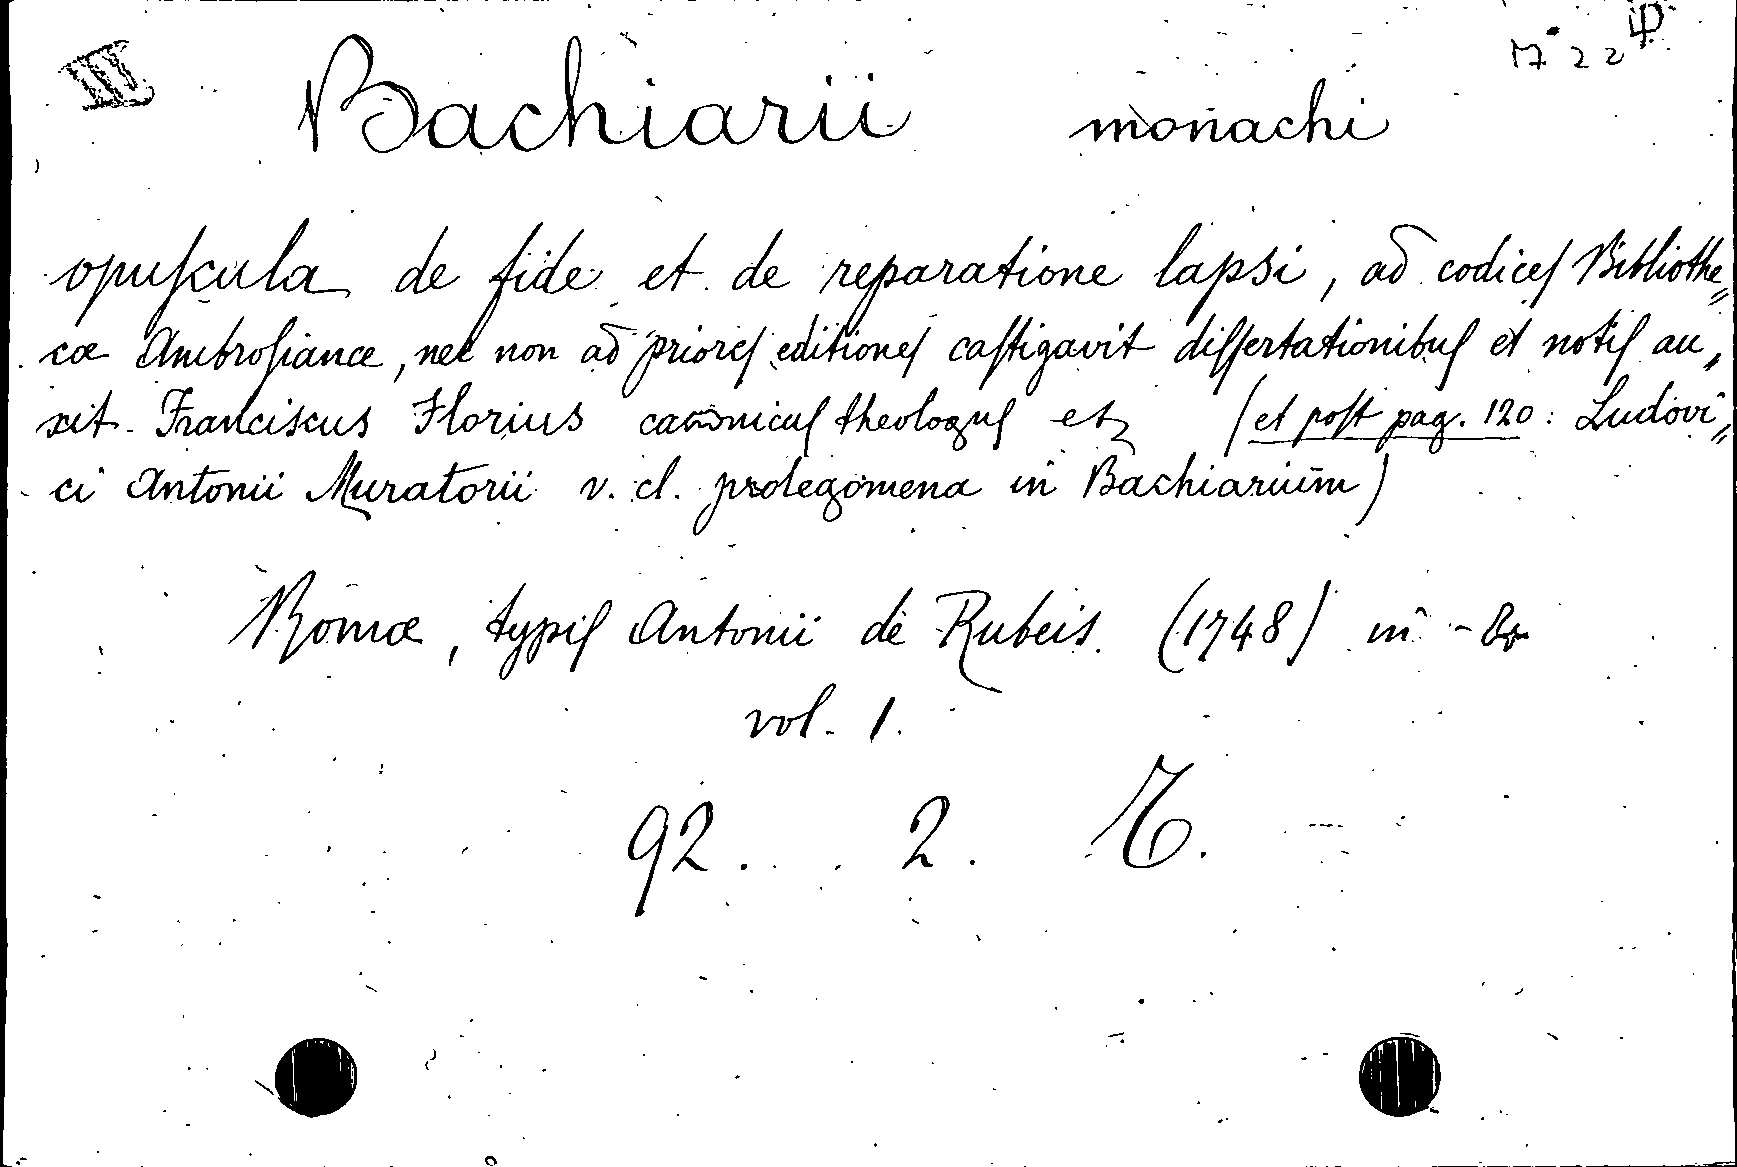 III
Bachiarii monachi
opuſcula de fide et de reparatione lapsi, ad codiceſ Bibliothe„
cæ Ambroſianæ, nec non ad prioreſ editioneſ caſtigavit diſſertationibuſ et notiſ au„
xit Franciscus Florius canonicuſ theologuſ etz (et poſt pag. 120: Ludovi„
ci Antonii Muratorii v. cl. prolegomena in Bachiarium)
Romæ, typiſ Antonii de Rubeis. (1748) in -8º
vol. 1.
92. . 2.